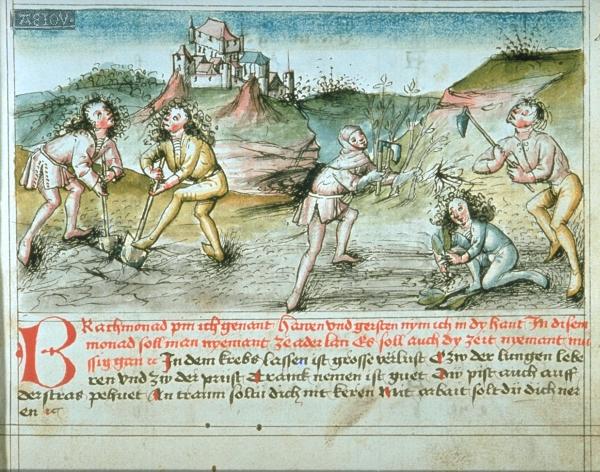 Brachmonad pin ich genant Harren und gersten nym ich in dy hant In disem
monad soll man nyemant ze ader lan Es soll auch dy zeit nyemant mus
sig gan ⁊c In dem krebs lassen ist grosse verlust Czw der lungen lebe
ren und zw der prust Tranck nemen ist guet Dw pist auch auff
der stras pehuet An traum soltu dich nit keren Mit arbait solt du dich ner
en ⁊c